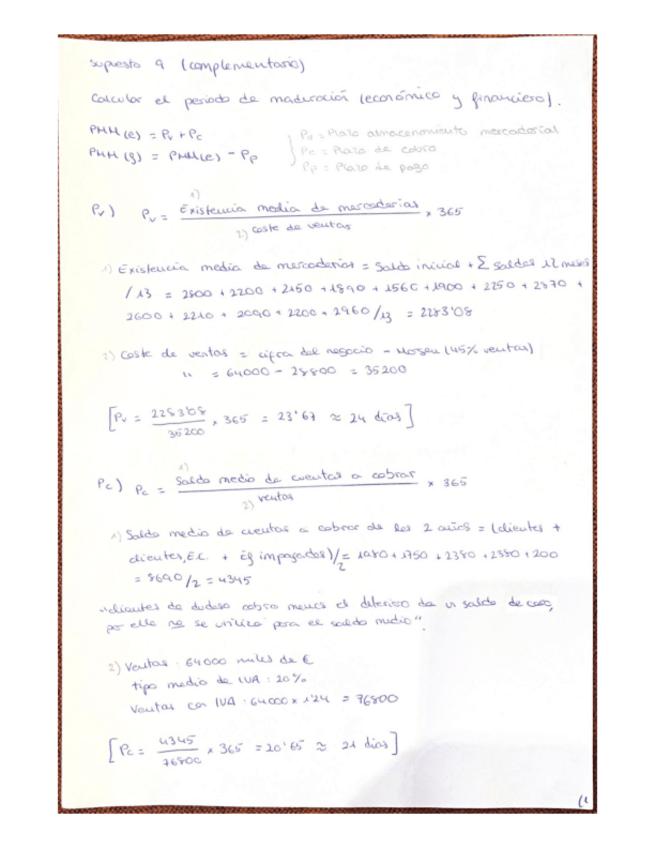 Supuesto 9 (complementario)
Calcular el periodo de maduración (económico y financiero).
PMM(e) = Pv + Pc
PMM(g) = PMM(e) - Pp
Pv = Plazo almacenamiento mercaderías
Pc = Plazo de cobro
Pp = Plazo de pago
Pv) Pv = 1) Existencia media de mercaderias / 2) coste de ventas × 365
1) Existencia media de mercaderias = Saldo inicial + Σ saldos 12 meses
/ 13 = 2800 + 2200 + 2150 + 1890 + 1560 + 1900 + 2250 + 2870 +
2600 + 2210 + 2090 + 2200 + 2960 / 13 = 2283'08
2) Coste de ventas = cifra del negocio - Margen (45% ventas)
" = 64000 - 28800 = 35200
[Pv = 2283'08 / 35200 × 365 = 23'67 ≈ 24 días]
Pc) Pc = 1) Saldo medio de cuentas a cobrar / 2) ventas × 365
1) Saldo medio de cuentas a cobrar de los 2 años = (clientes +
clientes, E.C. + impagados) / 2 = 1980 + 1750 + 2380 + 2380 + 200
= 8690 / 2 = 4345
"clientes de dudoso cobro menos el deterioro da un saldo de cero,
por ello no se utiliza para el saldo medio".
2) Ventas: 64000 miles de €
tipo medio de IVA: 20%
Ventas con IVA: 64000 × = 76800
[Pc = 4345 / 76800 × 365 = 20'65 ≈ 21 días]